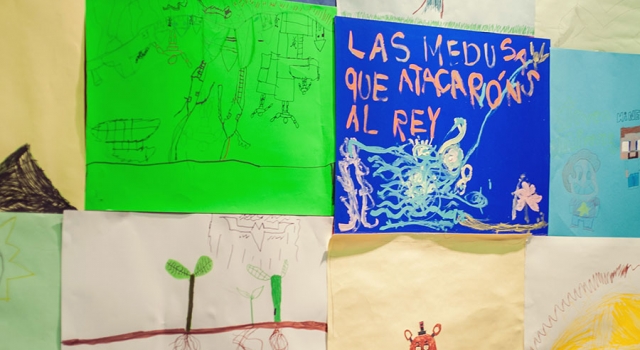 LAS MEDUSAS
QUE ATACARÓN
AL REY